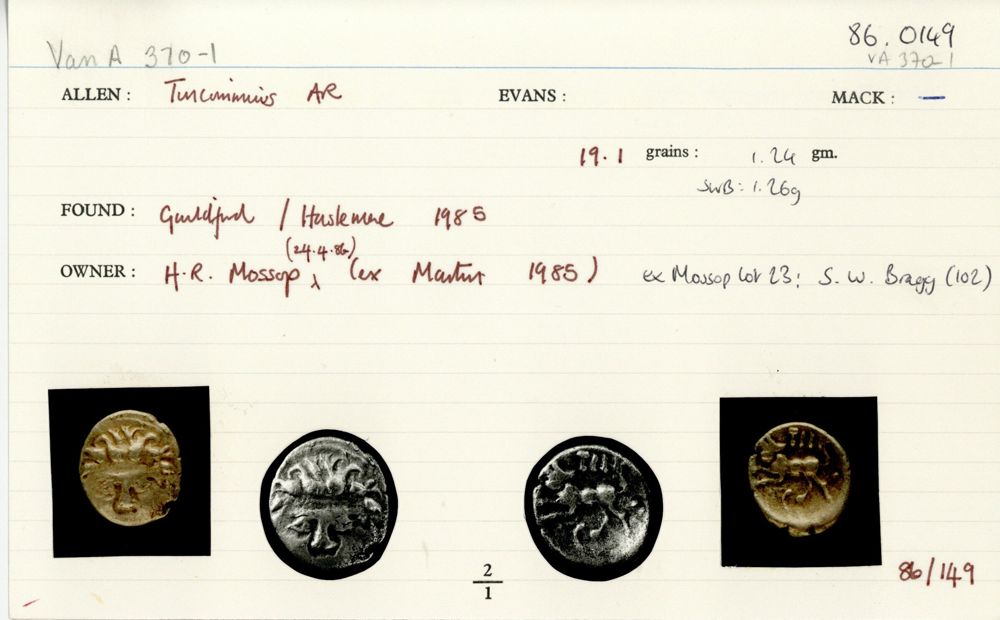 Van A 370-1
86.0149
VA 370-1
ALLEN : Tincommius AR EVANS : MACK : —
19.1 grains : 1.24 gm.
SWB: 1.26g
FOUND : Guildford / Haslemere 1985
(24.4.86)
OWNER : H.R. Mossop, (ex Martin 1985) ex Mossop lot 23; S. W. Bragg (102)
2
1
86/149